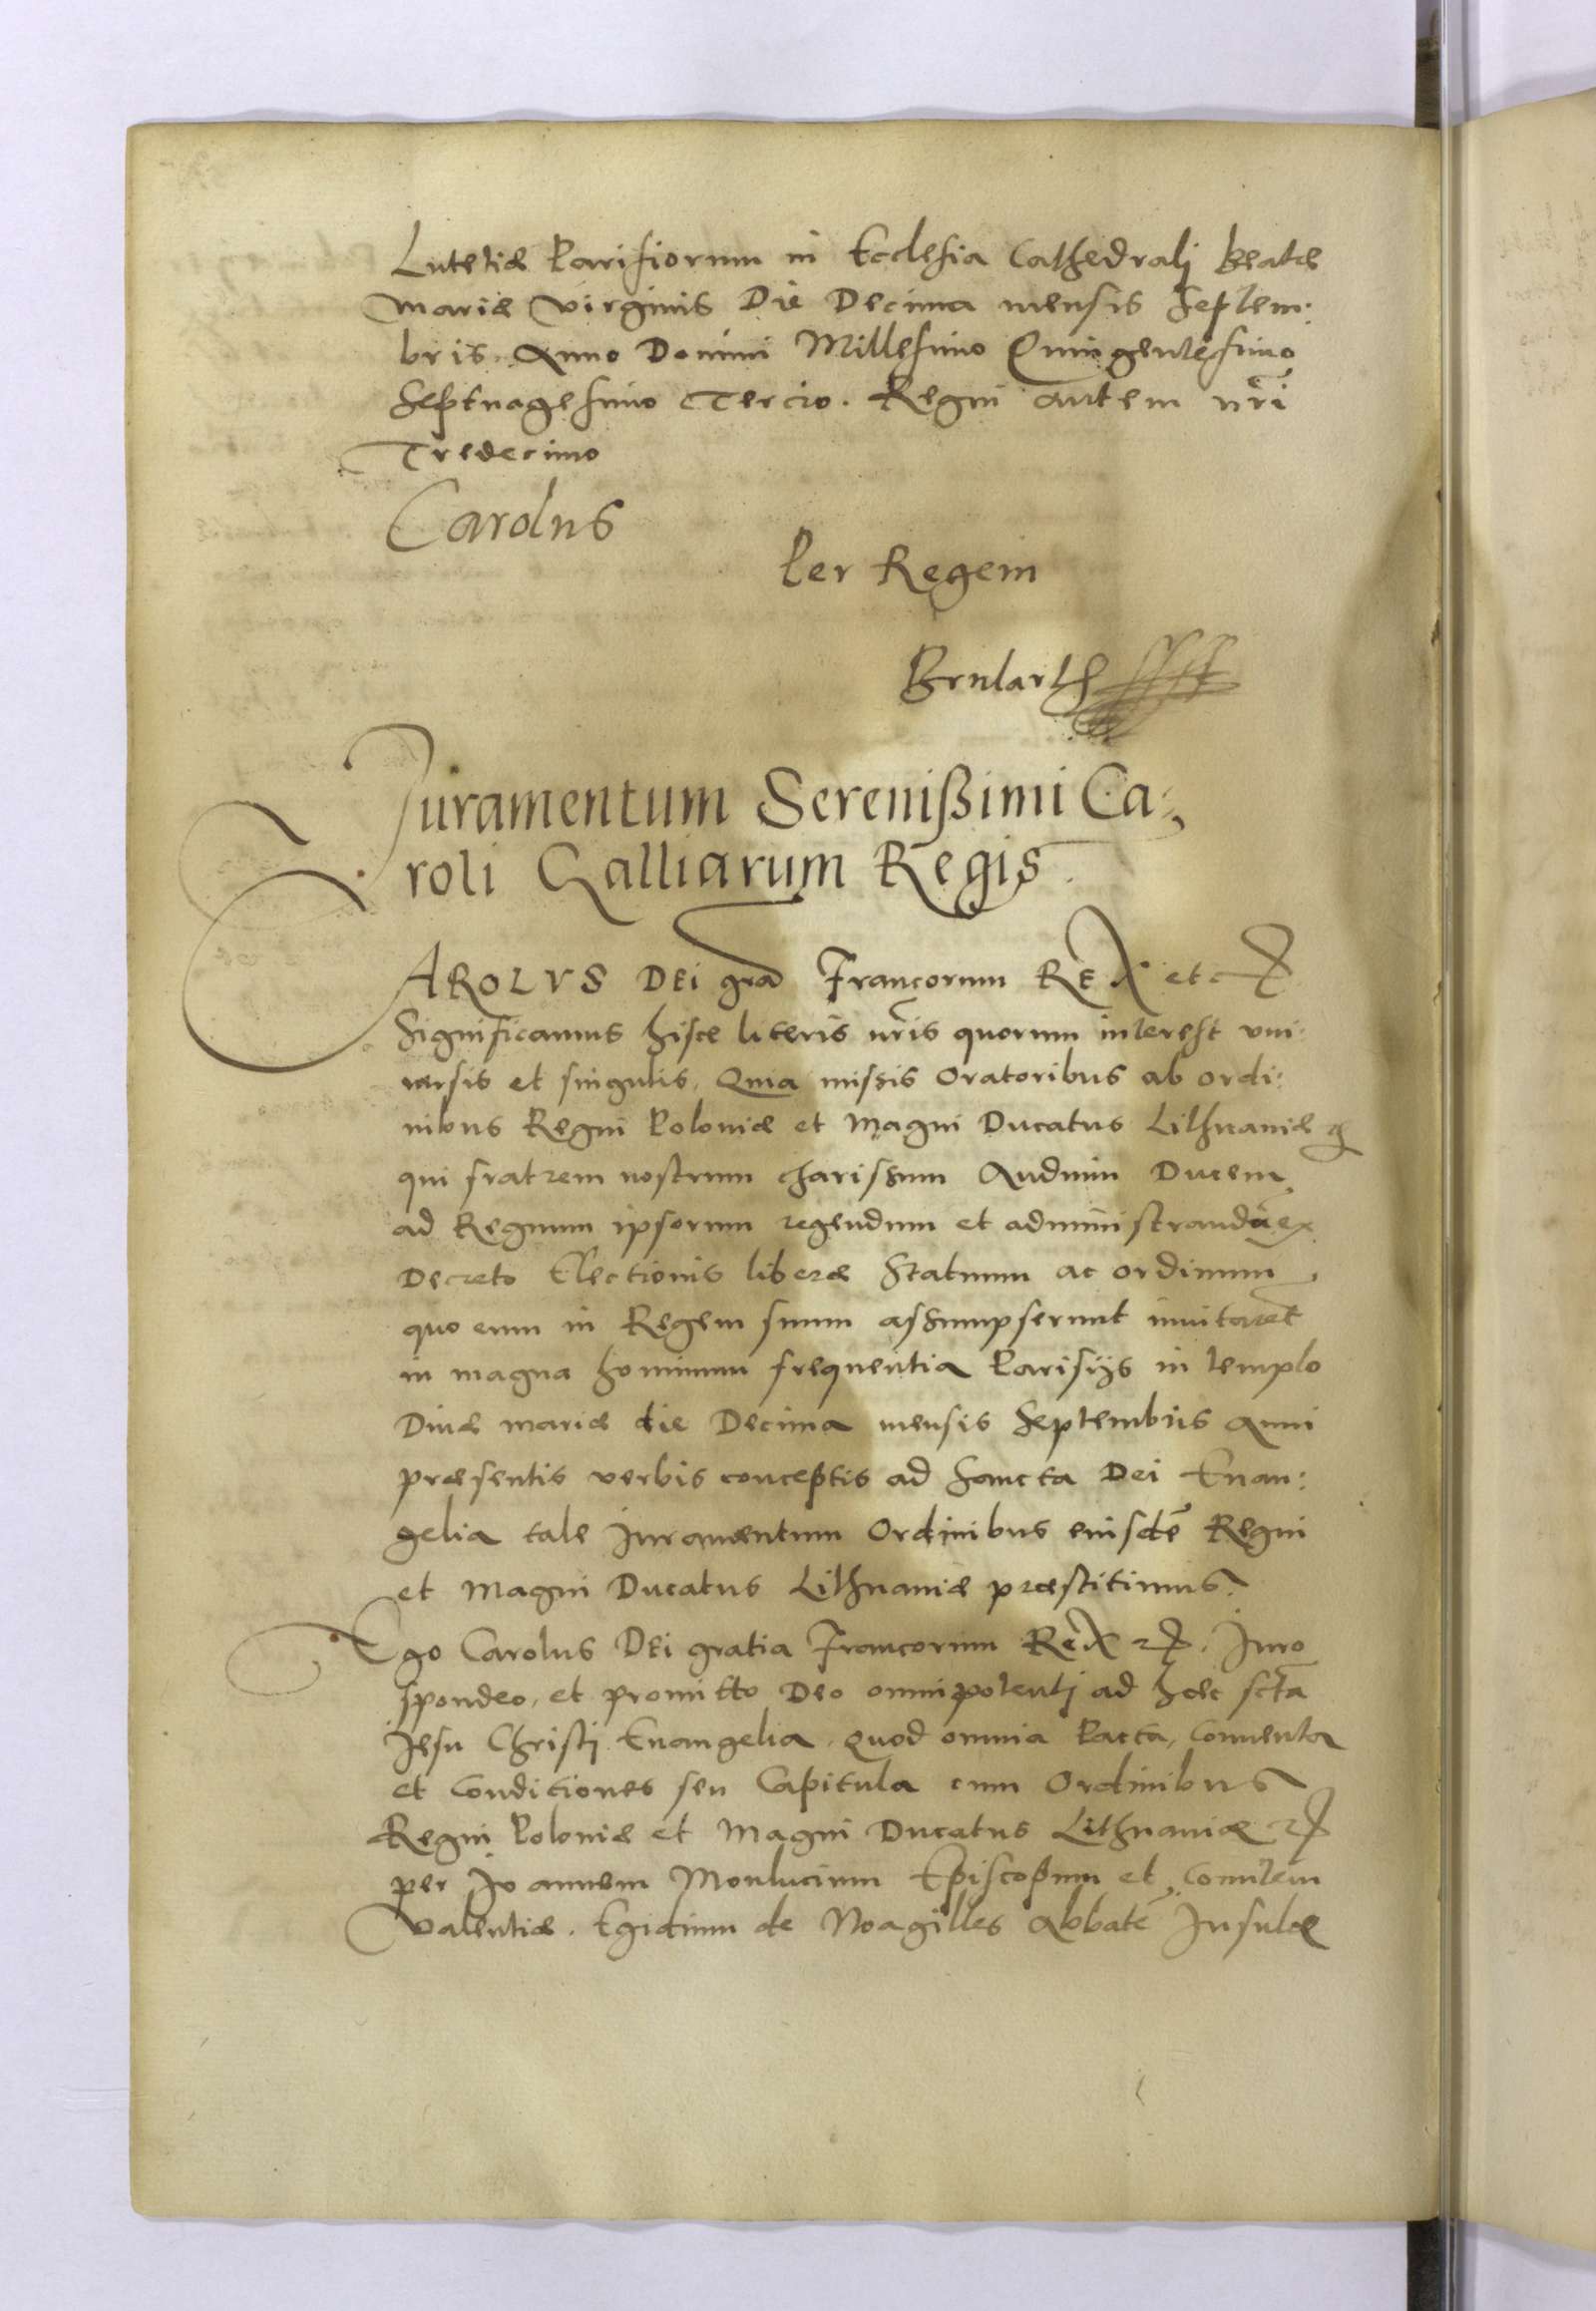 Lutetiæ Parisiorum in Ecclesia Cathedralj Beatæ
Mariæ Virginis Die Decima mensis Septem:
bris. Anno Domini Millesimo Quingentesimo
Septuagesimo Tercio. Regni autem nr̃i
Tredecimo
Carolus
Per Regem
Brularth
Juramentum Serenißimi Ca:
roli Galliarum Regis.
CAROLVS DEi gr̃a Francorum REX etc
Significamus hisce literis nr̃is quorum interest vni:
uersis et singulis, Quia missis Oratoribus ab ordi:
nibus Regni Poloniæ et Magni Ducatus Lithuaniæ
qui fratrem nostrum charissimum Andium Ducem
ad Regnum ipsorum regendum et administrandũ ex
Decreto Electionis liberæ Statuum ac ordinum
quo eum in Regem suum assumpserunt inuitaret
in magna hominum frequentia Parisijs in templo
Diuæ mariæ die Decima mensis Septembris Anni
præsentis verbis conceptis ad Sancta Dei Euan:
gelia tale Juramentum Ordinibus eiusdẽ Regni
et Magni Ducatus Lithuaniæ præstitimus.
Ego Carolus DEi gratia Francorum REX etc. Juro
spondeo, et promitto Deo omnipotentj ad hæc sc̃ta
Jesu Christj Euangelia, quod omnia Pacta, Conuenta
et Conditiones seu Capitula cum Ordinibus
Regni Poloniæ et Magni Ducatus Lithuaniæ etc
per Joannem Monlucium Episcopum et Comitem
Valentiæ. Egidium de Noagilles Abbatẽ Insulæ